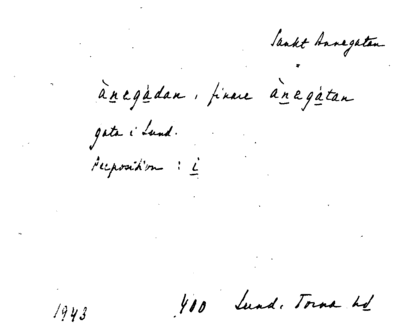 Sankt Annegatan
ànegàdan, finare ànegàtan
gata i Lund.
Preposition: i
1943 400 Lund. Torna hd